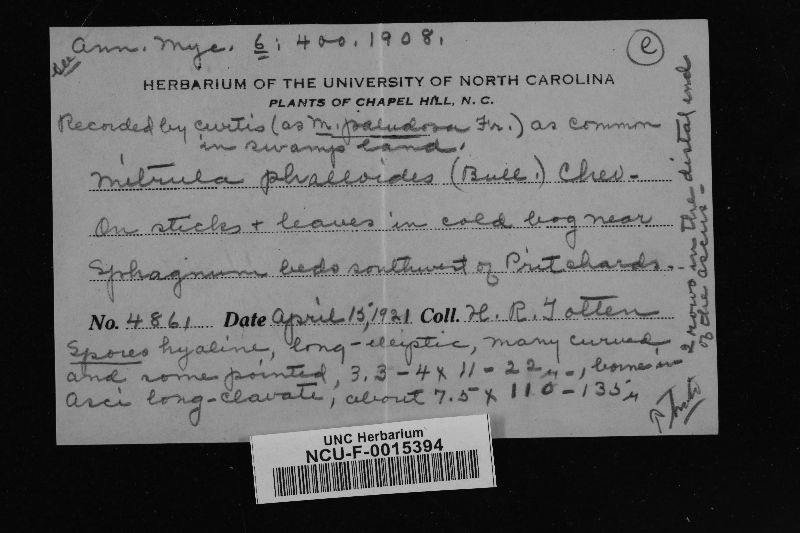 see Ann. Myc. 6: 400. 1908.
e
HERBARIUM OF THE UNIVERSITY OF NORTH CAROLINA
PLANTS OF CHAPEL HILL, N. C.
Recorded by Curtis (as M. paludosa Fr.) as common
in swamp land.
Mitrula phalloides (Bull.) Chev-
On sticks + leaves in cold bog near
Sphagnum beds southwest of Pritchards.
No. 4861 Date April 15, 1921 Coll. H. R. Totten
Spores hyaline, long-eliptic, many curved
and some pointed, 3.3-4 x 11-22µ-, borne in
2 rows in the distal end
of the ascus-
Asci long-clavate, about 7.5 x 110-135µ
UNC Herbarium
NCU-F-0015394